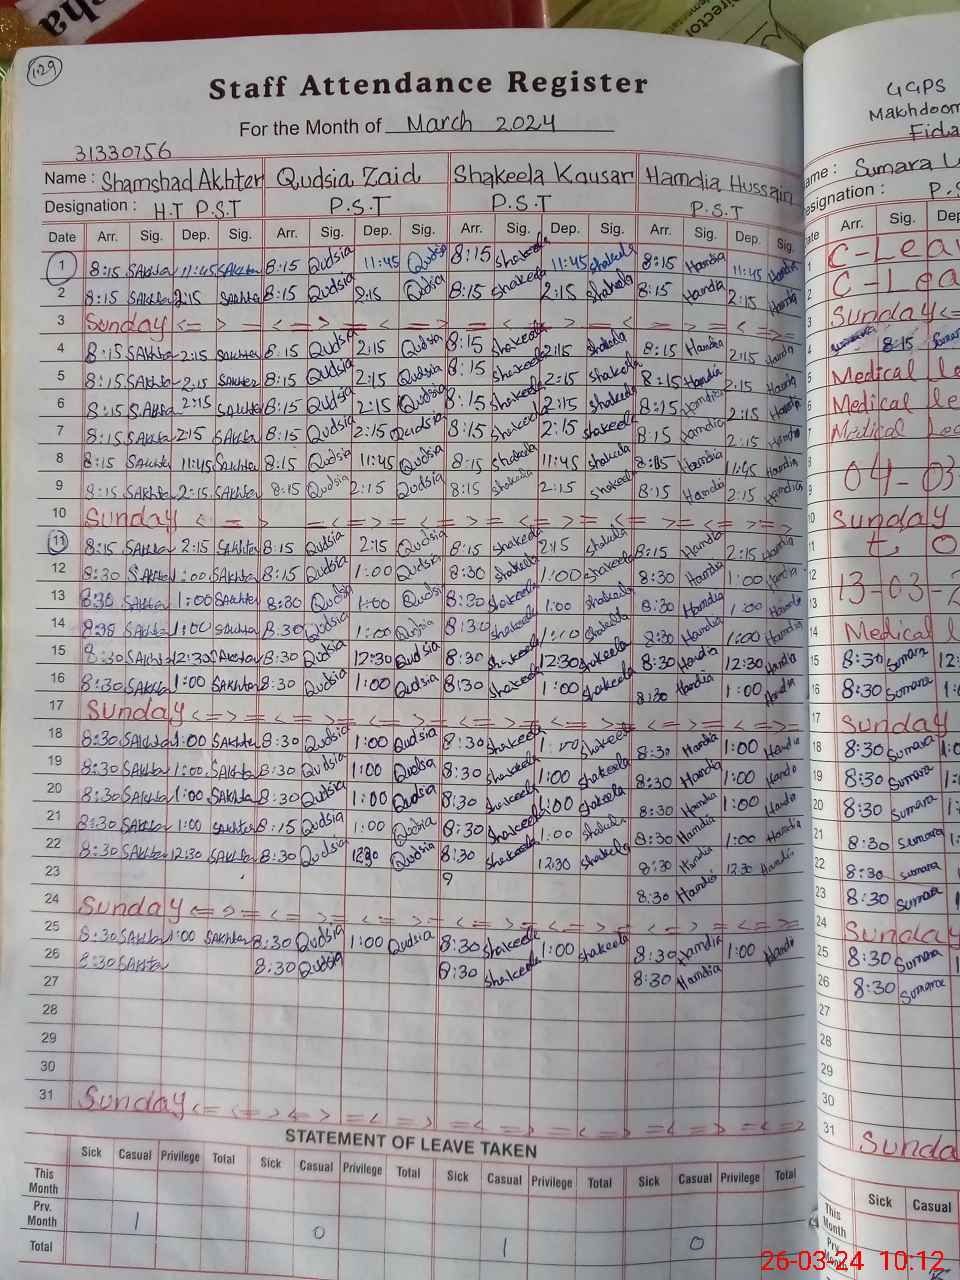 129
Staff Attendance Register
For the Month of March 2024
31330756
Name : Shamshad Akhter Qudsia Zaid Shakeela Kausar Hamdia Hussain
Designation : H.T P.S.T P.S.T P.S.T P.S.T
Date Arr. Sig. Dep. Sig. Arr. Sig. Dep. Sig. Arr. Sig. Dep. Sig. Arr. Sig. Dep. Sig.
1 8:15 SAkhter 11:45 SAkhter 8:15 Qudsia 11:45 Qudsia 8:15 Shakeela 11:45 Shakeela 8:15 Hamdia 11:45
2 8:15 SAkhter 2:15 SAkhter 8:15 Qudsia 2:15 Qudsia 8:15 Shakeela 2:15 Shakeela 8:15 Hamdia 2:15
3 Sunday
4 8:15 SAkhter 2:15 SAkhter 8:15 Qudsia 2:15 Qudsia 8:15 Shakeela 2:15 Shakeela 8:15 Hamdia 2:15
5 8:15 SAkhter 2:15 SAkhter 8:15 Qudsia 2:15 Qudsia 8:15 Shakeela 2:15 Shakeela 8:15 Hamdia 2:15
6 8:15 SAkhter 2:15 SAkhter 8:15 Qudsia 2:15 Qudsia 8:15 Shakeela 2:15 Shakeela 8:15 Hamdia 2:15
7 8:15 SAkhter 2:15 SAkhter 8:15 Qudsia 2:15 Qudsia 8:15 Shakeela 2:15 Shakeela 8:15 Hamdia 2:15
8 8:15 SAkhter 11:45 SAkhter 8:15 Qudsia 11:45 Qudsia 8:15 Shakeela 11:45 Shakeela 8:15 Hamdia 11:45 Hamdia
9 8:15 SAkhter 2:15 SAkhter 8:15 Qudsia 2:15 Qudsia 8:15 Shakeela 2:15 Shakeela 8:15 Hamdia 2:15 Hamdia
10 Sunday
11 8:15 SAkhter 2:15 SAkhter 8:15 Qudsia 2:15 Qudsia 8:15 Shakeela 2:15 Shakeela 8:15 Hamdia 2:15 Hamdia
12 8:30 SAkhter 1:00 SAkhter 8:15 Qudsia 1:00 Qudsia 8:30 Shakeela 1:00 Shakeela 8:30 Hamdia 1:00 Hamdia
13 8:30 SAkhter 1:00 SAkhter 8:30 Qudsia 1:00 Qudsia 8:30 Shakeela 1:00 Shakeela 8:30 Hamdia 1:00
14 SAkhter 1:00 SAkhter 8:30 Qudsia 1:00 Qudsia 8:30 Shakeela Shakeela 8:30 Hamdia 1:00 Hamdia
15 8:30 SAkhter 12:30 SAkhter 8:30 Qudsia 12:30 Qudsia 8:30 Shakeela 12:30 Shakeela 8:30 Hamdia 12:30 Hamdia
16 8:30 SAkhter 1:00 SAkhter 8:30 Qudsia 1:00 Qudsia 8:30 Shakeela 1:00 Shakeela 8:30 Hamdia 1:00 Hamdia
17 Sunday
18 8:30 SAkhter 1:00 SAkhter 8:30 Qudsia 1:00 Qudsia 8:30 Shakeela 1:00 Shakeela 8:30 Hamdia 1:00 Hamdia
19 8:30 SAkhter 1:00 SAkhter 8:30 Qudsia 1:00 Qudsia 8:30 Shakeela 1:00 Shakeela 8:30 Hamdia 1:00
20 8:30 SAkhter 1:00 SAkhter 8:30 Qudsia 1:00 Qudsia 8:30 Shakeela 1:00 Shakeela 8:30 Hamdia 1:00
21 8:30 SAkhter 1:00 SAkhter 8:15 Qudsia 1:00 Qudsia 8:30 Shakeela 1:00 Shakeela 8:30 Hamdia 1:00 Hamdia
22 8:30 SAkhter 12:30 SAkhter 8:30 Qudsia 12:30 Qudsia 8:30 Shakeela 12:30 Shakeela 8:30 Hamdia 12:30 Hamdia
23 9 8:30 Hamdia
24 Sunday
25 8:30 SAkhter 1:00 SAkhter 8:30 Qudsia 1:00 Qudsia 8:30 Shakeela 1:00 Shakeela 8:30 Hamdia 1:00
26 8:30 SAkhter 8:30 Qudsia 8:30 Shakeela 8:30 Hamdia
27
28
29
30
31 Sunday
STATEMENT OF LEAVE TAKEN
Sick Casual Privilege Total Sick Casual Privilege Total Sick Casual Privilege Total Sick Casual Privilege Total
This Month
Prv. Month 1 0 1 0
Total
GGPS
Makhdoom
Fida
Sumara
esignation : P.S
Arr. Sig. Dep
1 C-Lea
2 C-Lea
3 Sunday
4 8:15
5 Medical le
6 Medical le
7 Medical Lea
8 04-03
9
10 Sunday
11 t o
12 13-03-2
13
14 Medical l
15 8:30 Sumara 12:
16 8:30 Sumara 1:
17 Sunday
18 8:30 Sumara 1:0
19 8:30 Sumara 1:
20 8:30 Sumara 1:
21 8:30 Sumara 1:
22 8:30 Sumara
23 8:30 Sumara
24 Sunday
25 8:30 Sumara 1
26 8:30 Sumara
27
28
29
30
31 Sunda
Sick Casual
This Month
Prv. Month
26-03-24 10:12